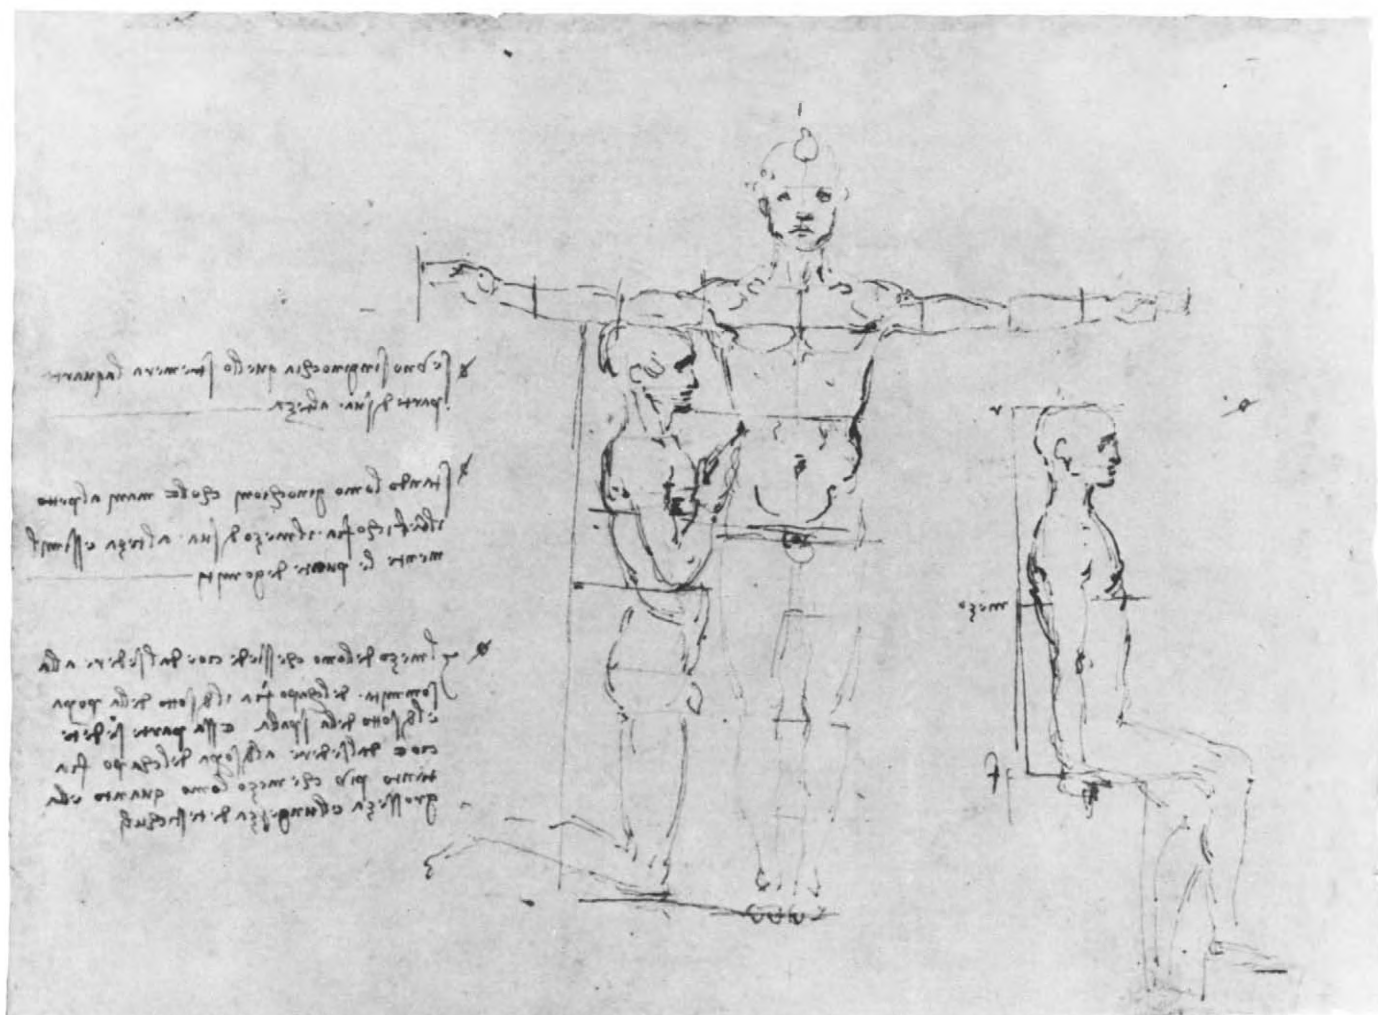 se lomo singinochia quello scemera la quarta
parte di sua alteza
stando lomo ginochioni chole mani al petto
il belicho fia il mezo di sua alteza e ssimil
mente le punte de gomiti
il mezo de lomo che ssiede coe dal sedere alla
sommita del chapo fia il di sotto della popa
e l di sotto dela spala essa parte sedete
coe dal sedere al di sopra del chapo fia
tanto piu che mezo lomo quanto e la
grosseza e llungheza de testichuli
mezo